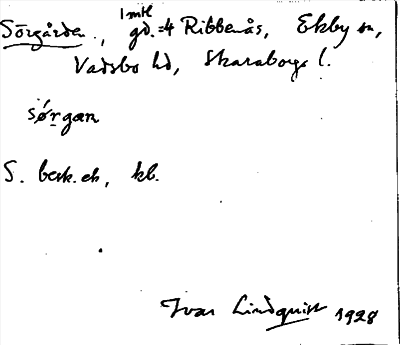 Sörgården, 1 mtl gd. =4 Ribbenås, Ekby sn,
Vadsbo hd, Skaraborgs l.
sørgan
S. besk. eh, kb.
Ivar Lindquist 1928